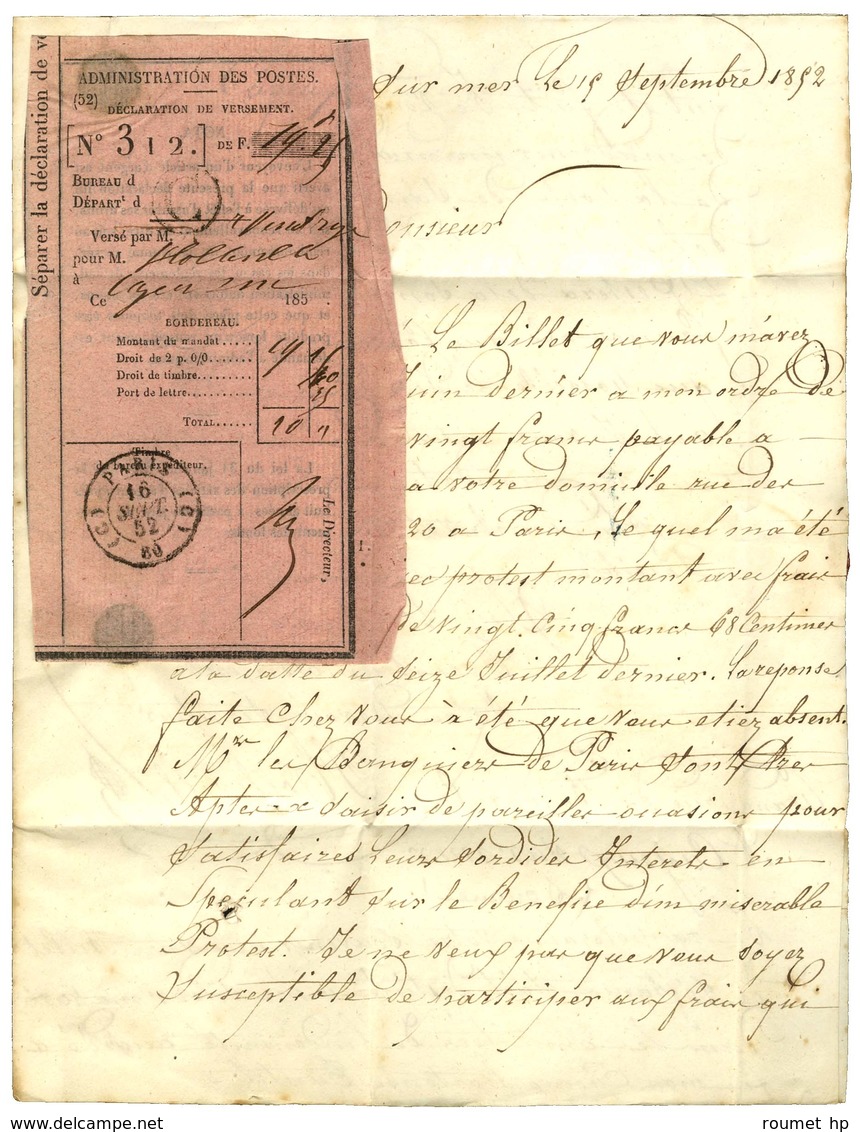 Séparer la déclaration de ve
ADMINISTRATION DES POSTES.
(52)
DÉCLARATION DE VERSEMENT.
[N° 312.] DE F. 19. 25
BUREAU d
DÉPART.t d
Versé par M.
pour M.
à
Ce 185
BORDEREAU.
Montant du mandat..... 19
Droit de 2 p. 0/0........ 40
Droit de timbre.......... 
Port de lettre........... 
TOTAL...... 20 "
Timbre
du bureau expéditeur.
PARIS
16
SEPT.
52
60
(C) (C)
Le Directeur,
Sur mer Le 15 Septembre 1852
Monsieur
Le Billet que vous m'avez
Juin dernier a mon ordre de
vingt francs payable a
a votre domicile rue des
20 a Paris, Le quel m'a été
protest montant avec frais
de vingt. Cinq francs 68 Centimes
a la datte du Seize Juillet dernier. La reponse
faite chez vous à été que vous etiez absent.
Mrs les Banquiers de Paris sont Asses
Aptes a saisir de pareilles ouasions pour
satisfaires Leurs Sordides Interets en
Speculant sur le Benefise d'un miserable
Protest. Je ne veux pas que vous soyez
Susceptible de participer aux frais qui
roumet hp